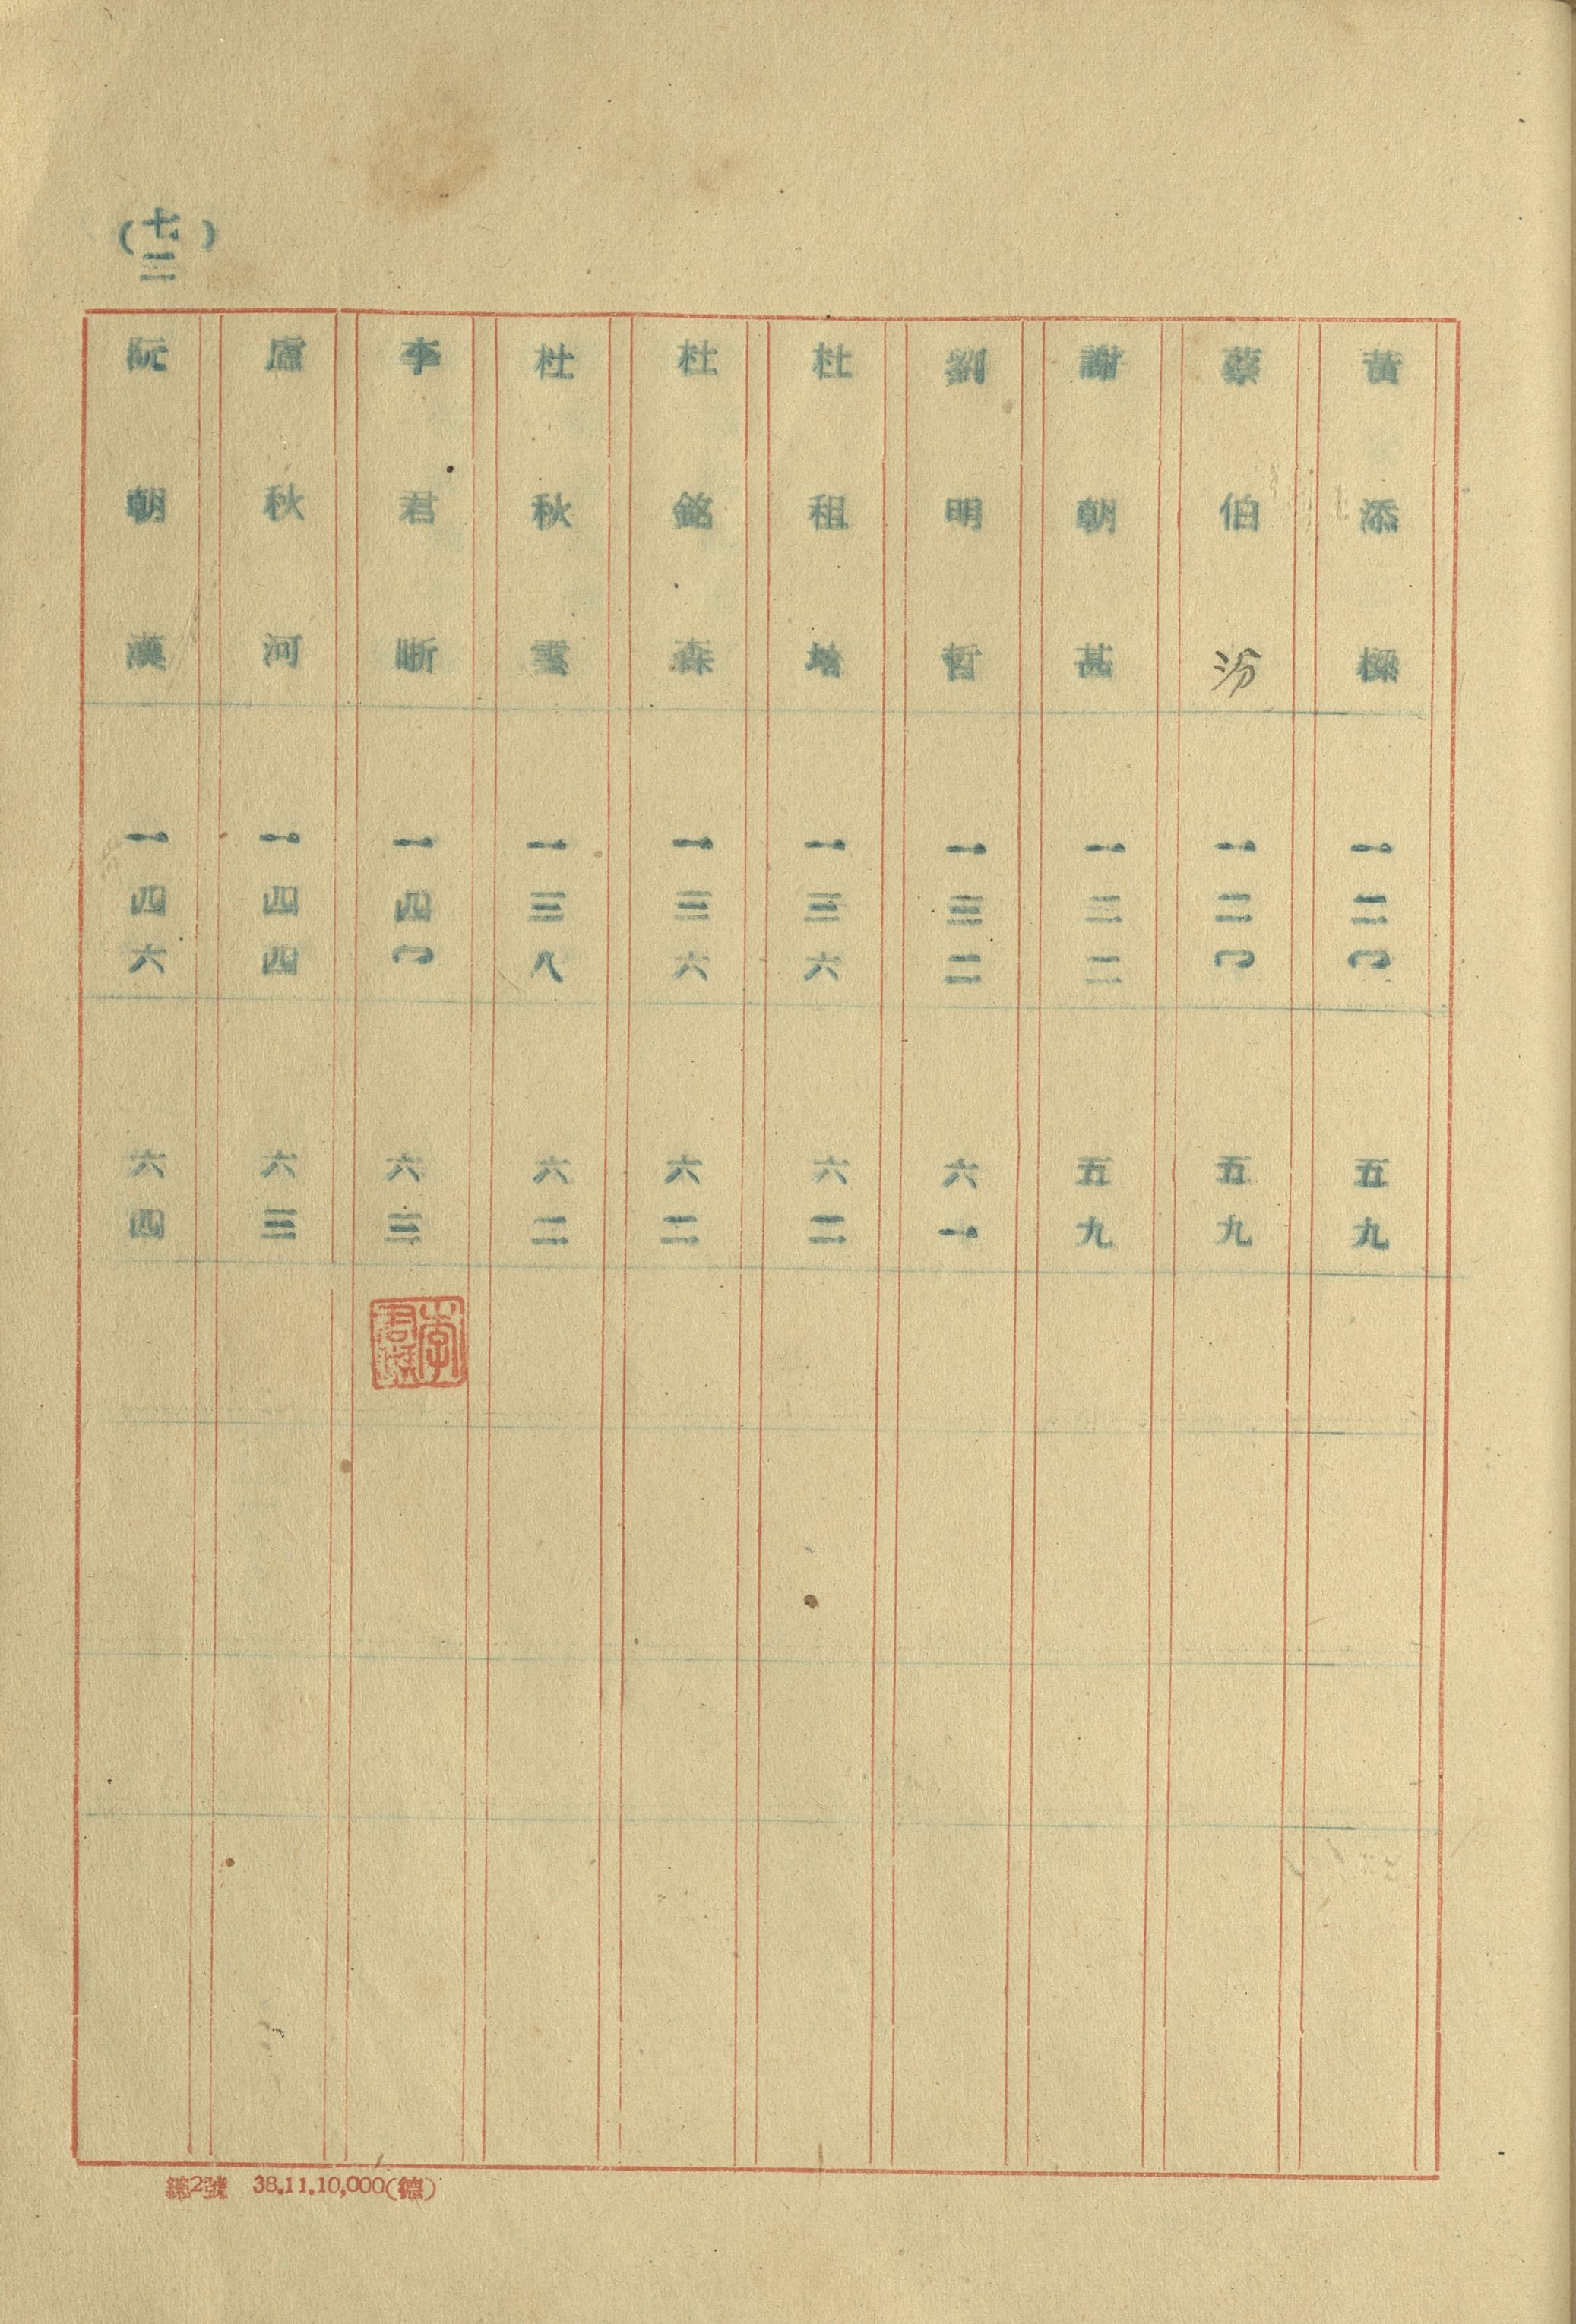 (七三)
黃添樑 一三〇 五九
蔡伯汾 一三〇 五九
謝朝甚 一三二 五九
劉明哲 一三二 六一
杜祖培 一三六 六二
杜銘森 一三六 六二
杜秋雲 一三八 六二
李君晰 一四〇 六三
李君
盧秋河 一四四 六三
阮朝漢 一四六 六四
總2號 38.11.10,000(德)